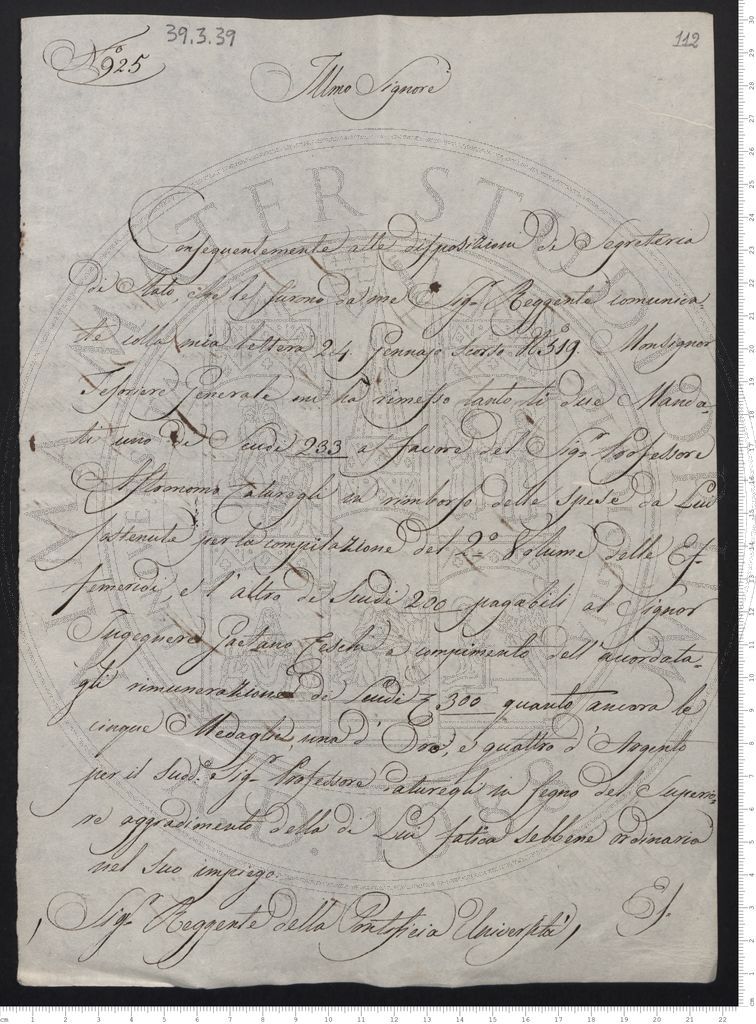 39.3.39
112
N.º 925
Illmo Signore
Conseguentemente alle disposizioni di Segreteria
di Stato che le furno da me Sigr. Reggente comunica
te colla mia lettera 24. Gennajo scorso Nº 319. Monsignor
Tesoriere Generale mi ha rimesso tanto li due Manda-
ti uno di Scudi 233 a favore del Sigr. Professore
Astronomo Caturegli in rimborso delle spese da Lui
sostenute per la compilazione del 2º Volume delle Ef-
femeridi, e l'altro di Scudi 200 pagabili al Signor
Ingegnere Gaetano Ceschi a compimento dell'acordata-
gli rimunerazione di Scudi 300 quanto ancora le
cinque Medaglie, una d'Oro, e quattro d'Argento
per il sudd. Sigr. Professore Caturegli in segno del Superio-
re aggradimento della di Lui fatica sebbene ordinaria
nel suo impiego.
Ef.
Sigr. Reggente della Pontificia Università